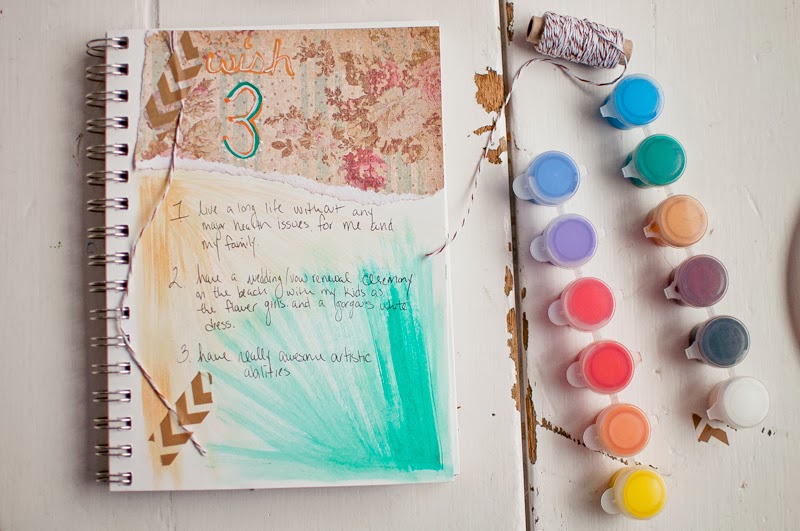 wish
3
1 live a long life without any
major health issues for me and
my family.
2. have a wedding/vow renewal ceremony
on the beach with my kids as
the flower girls and a gorgous white
dress.
3. have really awesome artistic
abilities